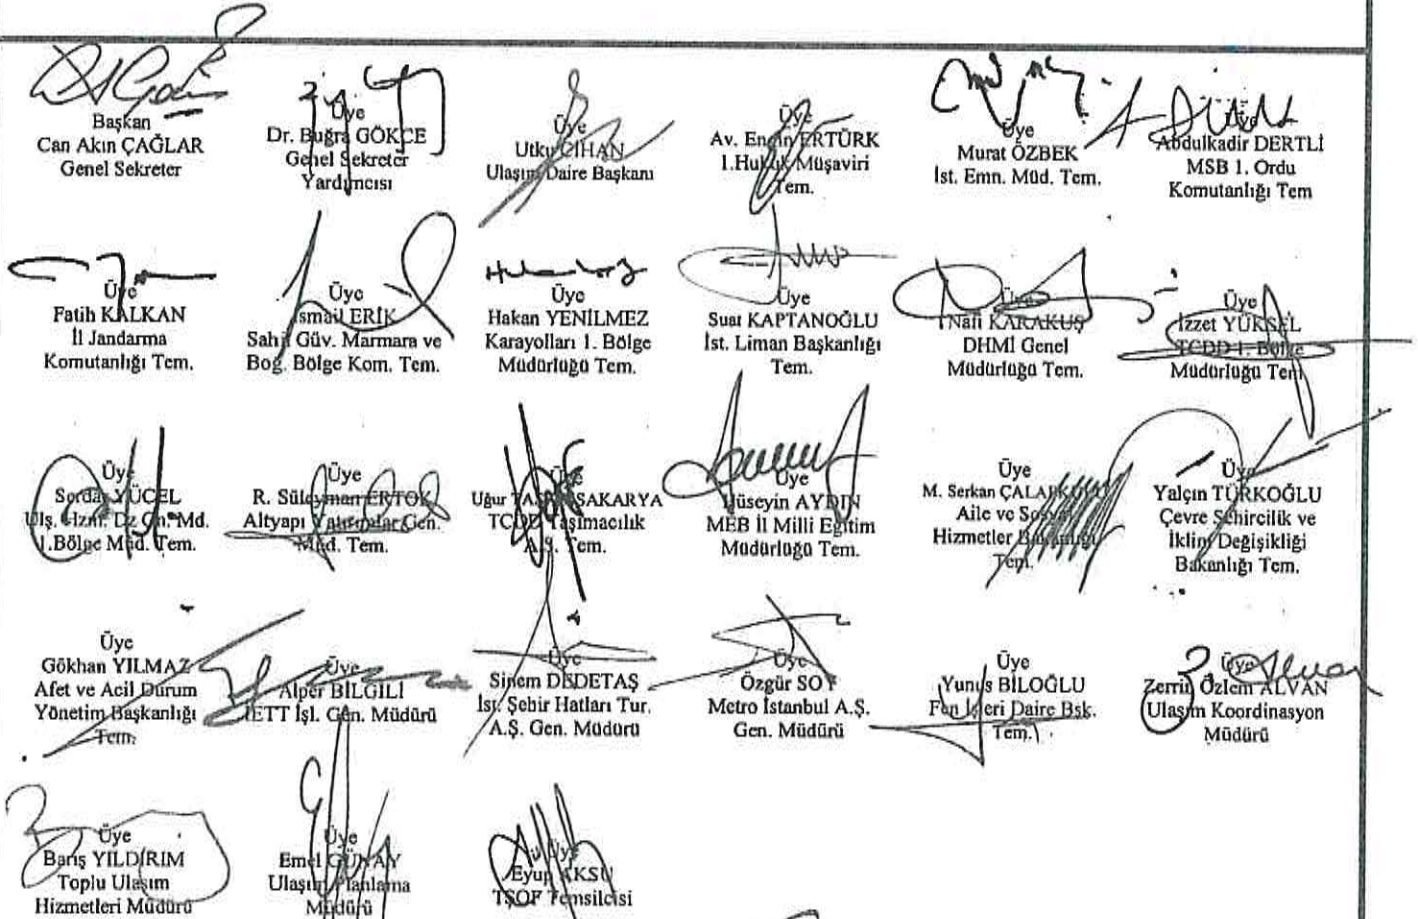 Başkan
Can Akın ÇAĞLAR
Genel Sekreter
Üye
Dr. Buğra GÖKÇE
Genel Sekreter
Yardımcısı
Üye
Utku CİHAN
Ulaşım Daire Başkanı
Üye
Av. Engin ERTÜRK
1.Hukuk Müşaviri
Tem.
Üye
Murat ÖZBEK
İst. Emn. Müd. Tem.
Üye
Abdulkadir DERTLİ
MSB 1. Ordu
Komutanlığı Tem
Üye
Fatih KALKAN
İl Jandarma
Komutanlığı Tem.
Üye
İsmail ERİK
Sahil Güv. Marmara ve
Boğ. Bölge Kom. Tem.
Üye
Hakan YENİLMEZ
Karayolları 1. Bölge
Müdürlüğü Tem.
Üye
Suat KAPTANOĞLU
İst. Liman Başkanlığı
Tem.
Üye
Nafi KARAKUŞ
DHMİ Genel
Müdürlüğü Tem.
Üye
İzzet YÜKSEL
TCDD 1. Bölge
Müdürlüğü Tem
Üye
Serdar YÜCEL
Ulş. Hzm. Dz Gn. Md.
1.Bölge Müd. Tem.
Üye
R. Süleyman ERTOK
Altyapı Yatırımlar Gen.
Müd. Tem.
Üye
Uğur SAKARYA
TCDD Taşımacılık
A.Ş. Tem.
Üye
Hüseyin AYDIN
MEB İl Milli Eğitim
Müdürlüğü Tem.
Üye
M. Serkan
Aile ve Sosyal
Hizmetler Bakanlığı
Tem.
Üye
Yalçın TÜRKOĞLU
Çevre Şehircilik ve
İklim Değişikliği
Bakanlığı Tem.
Üye
Gökhan YILMAZ
Afet ve Acil Durum
Yönetim Başkanlığı
Tem.
Üye
Alper BİLGİLİ
İETT İşl. Gen. Müdürü
Üye
Sinem DEDETAŞ
İst. Şehir Hatları Tur.
A.Ş. Gen. Müdürü
Üye
Özgür SOY
Metro İstanbul A.Ş.
Gen. Müdürü
Üye
Yunus BİLOĞLU
Fen İşleri Daire Bşk.
Tem.
Üye
Zerrin Özlem ALVAN
Ulaşım Koordinasyon
Müdürü
Üye
Barış YILDIRIM
Toplu Ulaşım
Hizmetleri Müdürü
Üye
Emel GÜNAY
Ulaşım Planlama
Müdürü
Üye
Eyup AKSU
TŞOF Temsilcisi